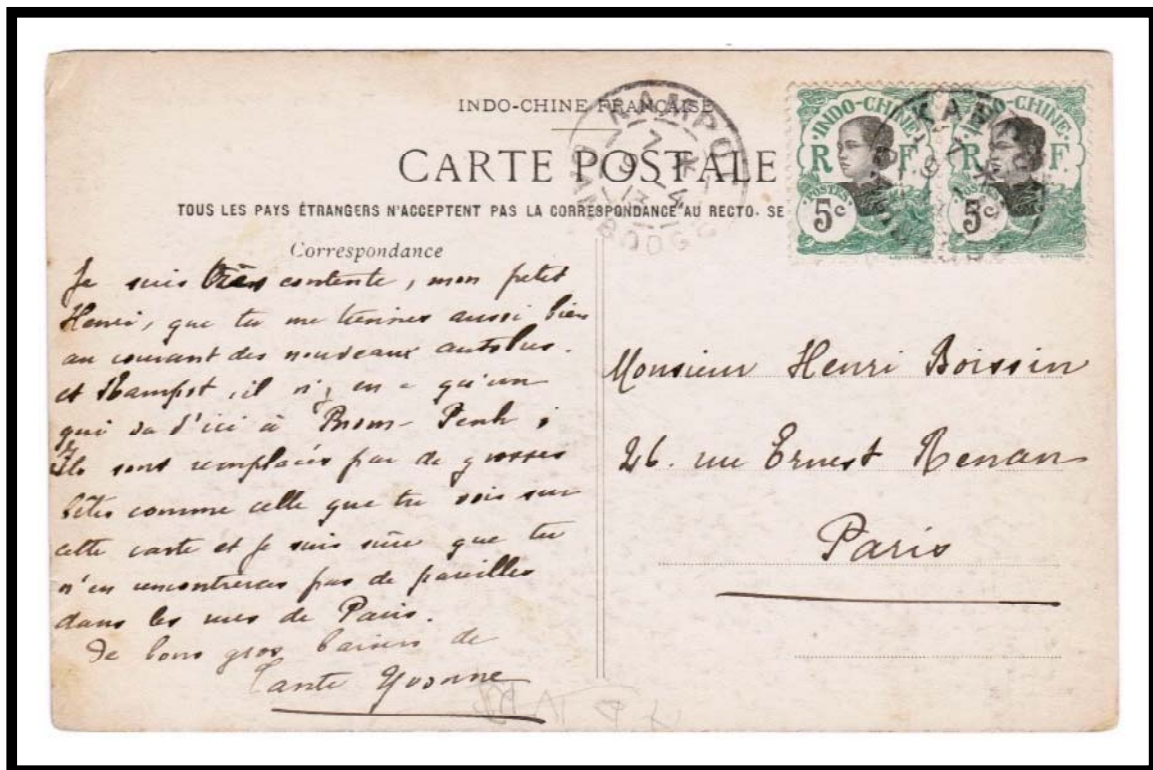 INDO-CHINE FRANÇAISE
CARTE POSTALE
TOUS LES PAYS ÉTRANGERS N'ACCEPTENT PAS LA CORRESPONDANCE AU RECTO. SE
KAMPOT
7 *
9 - 4
13
CAMBODGE
INDO-CHINE
R F
POSTES
5c
INDO-CHINE
R F
POSTES
5c
KAMPOT
CAMBODGE
Correspondance
Je suis très contente, mon petit
Henri, que tu me tiennes aussi bien
au courant des nouveaux autobus.
et Kampot, il n'y en a qu'un
qui va d'ici à Pnom-Penh ;
Ils sont remplacés par de grosses
bêtes comme celle que tu vois sur
cette carte et je suis sûre que tu
n'en rencontreras pas de pareilles
dans les rues de Paris.
De bons gros baisers de
Tante Yvonne
Monsieur Henri Boissin
26. rue Ernest Renan
Paris